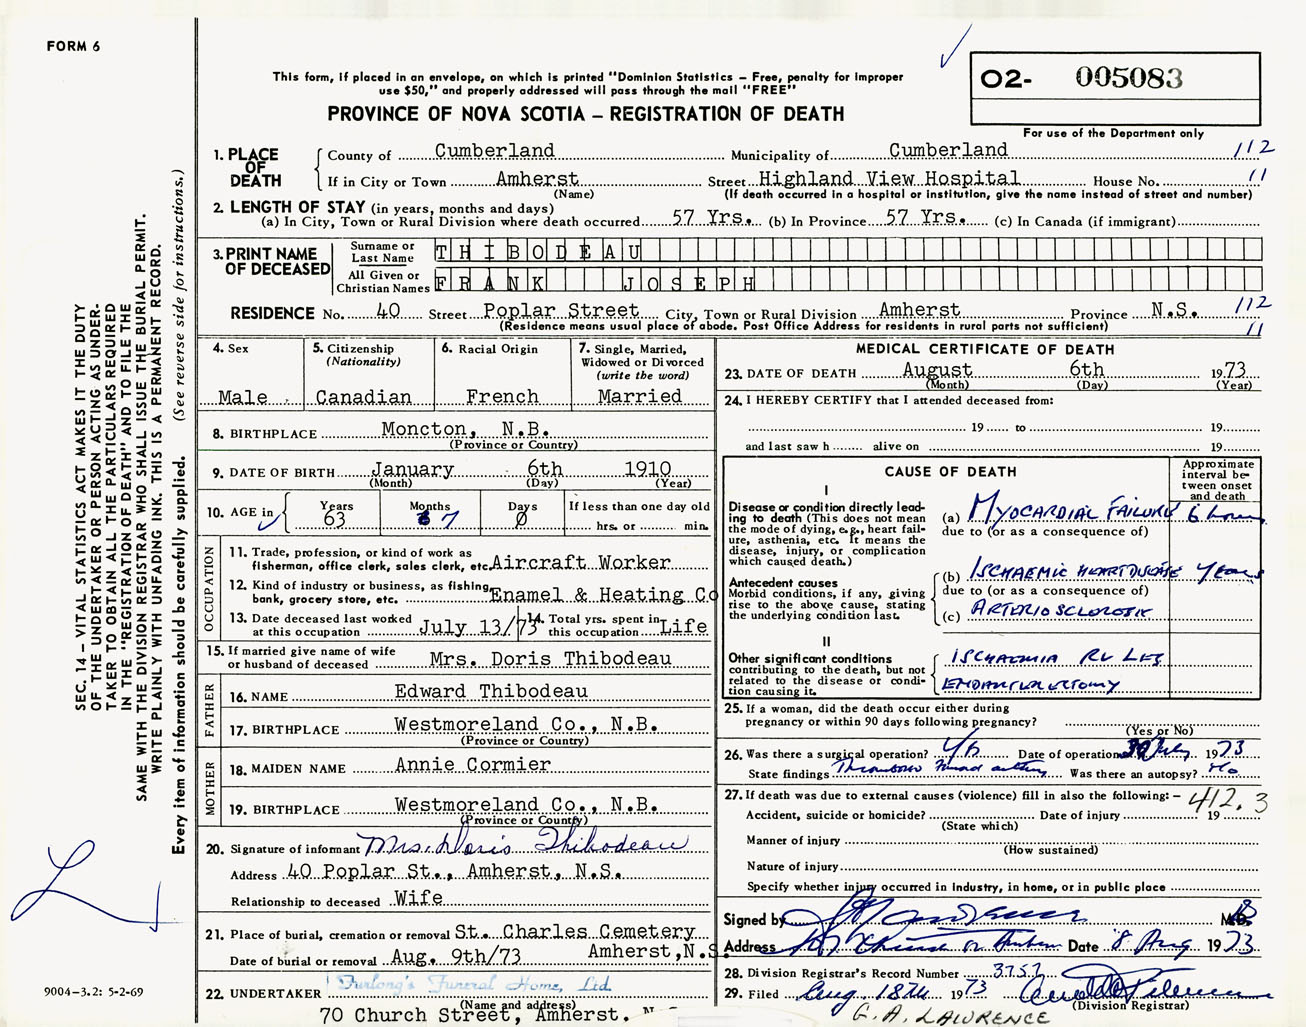 FORM 6
This form, if placed in an envelope, on which is printed "Dominion Statistics – Free, penalty for improper
use $50," and properly addressed will pass through the mail "FREE"
PROVINCE OF NOVA SCOTIA – REGISTRATION OF DEATH
02- 005083
For use of the Department only
1. PLACE OF DEATH
County of Cumberland Municipality of Cumberland 112
If in City or Town Amherst Street Highland View Hospital House No. 11
(Name) (If death occurred in a hospital or institution, give the name instead of street and number)
2. LENGTH OF STAY (in years, months and days)
(a) In City, Town or Rural Division where death occurred 57 Yrs. (b) In Province 57 Yrs. (c) In Canada (if immigrant)
3. PRINT NAME OF DECEASED
Surname or Last Name THIBODEAU
All Given or Christian Names FRANK JOSEPH
RESIDENCE No. 40 Street Poplar Street City, Town or Rural Division Amherst Province N.S. 112
(Residence means usual place of abode. Post Office Address for residents in rural parts not sufficient) 11
4. Sex
Male
5. Citizenship
(Nationality)
Canadian
6. Racial Origin
French
7. Single, Married,
Widowed or Divorced
(write the word)
Married
8. BIRTHPLACE Moncton, N.B.
(Province or Country)
9. DATE OF BIRTH January 6th 1910
(Month) (Day) (Year)
10. AGE in Years Months Days If less than one day old
63 7 0 hrs. or min.
OCCUPATION
11. Trade, profession, or kind of work as
fisherman, office clerk, sales clerk, etc. Aircraft Worker
12. Kind of industry or business, as fishing,
bank, grocery store, etc. Enamel & Heating Co
13. Date deceased last worked
at this occupation July 13/73
14. Total yrs. spent in
this occupation Life
15. If married give name of wife
or husband of deceased Mrs. Doris Thibodeau
FATHER
16. NAME Edward Thibodeau
17. BIRTHPLACE Westmoreland Co., N.B.
(Province or Country)
MOTHER
18. MAIDEN NAME Annie Cormier
19. BIRTHPLACE Westmoreland Co., N.B.
(Province or Country)
20. Signature of informant Mrs. Doris Thibodeau
Address 40 Poplar St., Amherst, N.S.
Relationship to deceased Wife
21. Place of burial, cremation or removal St. Charles Cemetery
Date of burial or removal Aug. 9th/73 Amherst, N.S.
22. UNDERTAKER Furlong's Funeral Home, Ltd.
(Name and address)
70 Church Street, Amherst.
MEDICAL CERTIFICATE OF DEATH
23. DATE OF DEATH August 6th 1973
(Month) (Day) (Year)
24. I HEREBY CERTIFY that I attended deceased from:
19 to 19
and last saw h alive on 19
CAUSE OF DEATH
Approximate
interval be-
tween onset
and death
I
Disease or condition directly lead-
ing to death (This does not mean
the mode of dying, e.g., heart fail-
ure, asthenia, etc. It means the
disease, injury, or complication
which caused death.)
(a) Myocardial Failure 6 hours
due to (or as a consequence of)
Antecedent causes
Morbid conditions, if any, giving
rise to the above cause, stating
the underlying condition last.
(b) Ischaemic heart disease years
due to (or as a consequence of)
(c) Arteriosclerotic
II
Other significant conditions
contributing to the death, but not
related to the disease or condi-
tion causing it.
Ischaemia Rt Leg
Endarterectomy
25. If a woman, did the death occur either during
pregnancy or within 90 days following pregnancy?
(Yes or No)
26. Was there a surgical operation? Yes Date of operation 30 July 1973
State findings Was there an autopsy? No
27. If death was due to external causes (violence) fill in also the following: – 412.3
Accident, suicide or homicide? Date of injury 19
(State which)
Manner of injury
(How sustained)
Nature of injury
Specify whether injury occurred in industry, in home, or in public place
Signed by M.D.
Address Church St Amherst Date 8 Aug 1973
28. Division Registrar's Record Number 3757
29. Filed Aug 18th 1973
(Division Registrar)
G. A. LAWRENCE
SEC. 14 – VITAL STATISTICS ACT MAKES IT THE DUTY
OF THE UNDERTAKER OR PERSON ACTING AS UNDER-
TAKER TO OBTAIN ALL THE PARTICULARS REQUIRED
IN THE "REGISTRATION OF DEATH" AND TO FILE THE
SAME WITH THE DIVISION REGISTRAR WHO SHALL ISSUE THE BURIAL PERMIT.
WRITE PLAINLY WITH UNFADING INK. THIS IS A PERMANENT RECORD.
Every item of information should be carefully supplied. (See reverse side for instructions.)
9004-3.2: 5-2-69